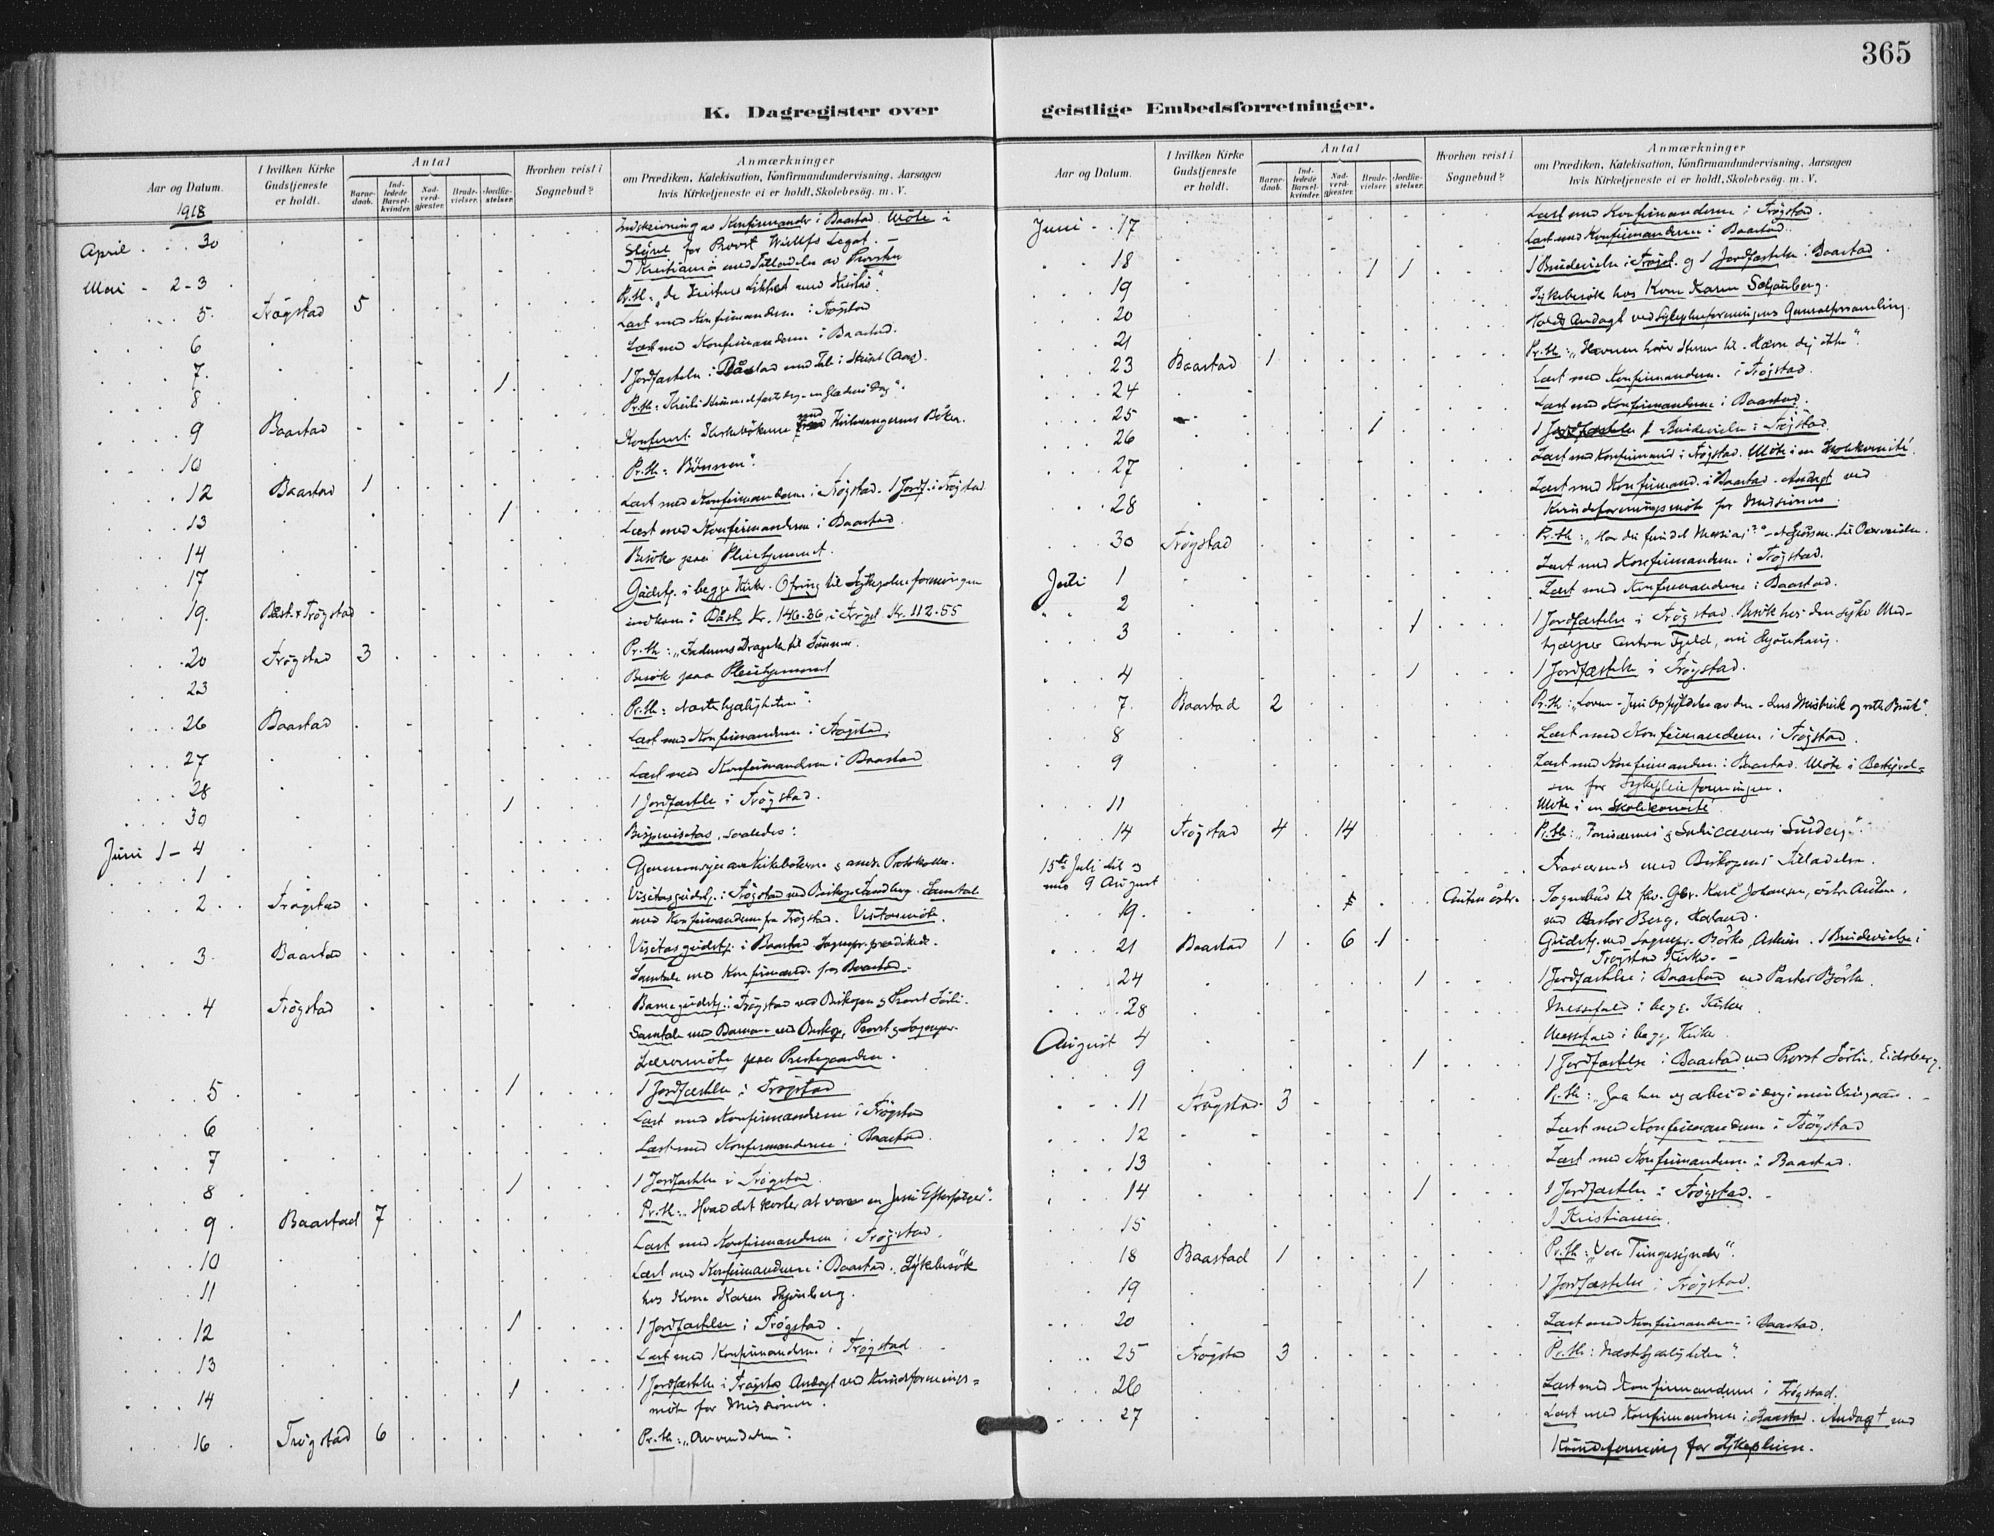 365
K. Dagregister over
geistlige Embedsforretninger.
Aar og Datum.
I hvilken Kirke Gudstjeneste er holdt.
Antal
Barnedaab.
Indledede Barselkvinder.
Nadverdgjæster.
Brudevielser.
Jordfæstelser.
Hvorhen reist i Sognebud?
Anmærkninger
om Prædiken, Katekisation, Konfirmandundervisning, Aarsagen
hvis Kirketjeneste ei er holdt, Skolebesøg. m. V.
1918
April 30 Indskrivning av Konfirmander i Baastad. Møte i
Styret for Provst Wulffs Legat.
Mai 2-3 I Kristiania med Tilladelse av Provsten
5 Trøgstad 5 Pr. th.
6 Læst med Konfirmanderne i Trøgstad
7 Læst med Konfirmanderne i Baastad.
8 1 1 Jordfæstelse i Båstad
9 Baastad Pr. th.
10 Konferert Kirkebøkerne med
12 Baastad 1 Pr. th. "Bønnen".
13 1 Læst med Konfirmanderne i Trøgstad. 1 Jordf. i Trøgstad
14 Læst med Konfirmanderne i Baastad.
17 Besøk paa Pleiehjemmet.
19. Baast. & Trøgstad Gudstj. i begge Kirker. Ofring til Sykepleieforeningen
indkom i Båst. Kr. 146.36, i Trøgst. Kr. 112.55
20 Trøgstad 3 Pr. th.: "Faderens Dragelse til Sønnen.
23 Besøk paa Pleiehjemmet
26 Baastad Pr. th.: Næstekjærligheten"
27 Læst med Konfirmanderne i Trøgstad.
28 Læst med Konfirmanderne i Baastad
30 1 1 Jordfæstelse i Trøgstad.
Juni 1-4 Bispevisitas, saaledes:
1 Gjennemsyn av Kirkebøkerne & andr. Protokoller.
2 Trøgstad Visitasgudstj. i Trøgstad ved Biskop Tandberg. Samtale
med Konfirmanderne fra Trøgstad. Visitasmøte.
3 Baastad Visitasgudstj. i Baastad. Sognepr. prædikede.
Samtale med Konfirmand. fra Baastad.
4 Trøgstad Barnegudstj. i Trøgstad ved Biskopen & Provst Sørli.
Samtale med Barna ved Biskop, Provst & Sognepr.
Lærermøte paa Prestegaarden.
5 1 1 Jordfæstelse i Trøgstad
6 Læst med Konfirmanderne i Trøgstad
7 Læst med Konfirmanderne i Baastad.
8 1 1 Jordfæstelse i Trøgstad.
9 Baastad 7 Pr. th.: "Hvad det koster at være en Jesu Efterfølger".
10 Læst med Konfirmanderne i Trøgstad.
11 Læst med Konfirmanderne i Baastad. Sykebesøk
hos Kone Karen Skjønberg.
12 1 1 Jordfæstelse i Trøgstad.
13 Læst med Konfirmanderne i Trøgstad
14 1 1 Jordfæstelse i Trøgstad Andagt ved Kvindeforenings=
møte for Missionen.
16 Trøgstad 6 Pr. th.:
Aar og Datum.
I hvilken Kirke Gudstjeneste er holdt.
Antal
Barnedaab.
Indledede Barselkvinder.
Nadverdgjæster.
Brudevielser.
Jordfæstelser.
Hvorhen reist i Sognebud?
Anmærkninger
om Prædiken, Katekisation, Konfirmandundervisning, Aarsagen
hvis Kirketjeneste ei er holdt, Skolebesøg. m. V.
Juni 17 Læst med Konfirmanderne i Trøgstad.
18 1 1 Læst med Konfirmanderne i Baastad.
19 1 Brudevielse i Trøgst. og 1 Jordfæstelse i Baastad.
20 Sykebesøk hos Kone Karen Schjønberg.
21 Holdt Andagt ved Sykepleieforeningens Generalforsamling.
23 Baastad 1 Pr. th.: "Hævnen hører Herren til. Hævn dig ikke".
24 Læst med Konfirmanderne i Trøgstad.
25 Læst med Konfirmanderne i Baastad.
26 1 1 Brudevielse i Trøgstad.
27 Læst med Konfirmand. i Trøgstad. Møte i en Skolekomité.
28 Læst med Konfirmand. i Baastad. Andagt ved
Kvindeforeningsmøte for Missionen.
30 Trøgstad Pr. th.: "Har du fundet Messias?"
Juli 1 Læst med Konfirmanderne i Trøgstad.
2 Læst med Konfirmanderne i Baastad.
3 1 1 Jordfæstelse i Trøgstad. Besøk hos den syke Med-
hjælper Anton Fjeld,
4 1 1 Jordfæstelse i Trøgstad.
7. Baastad 2 Pr. th.: "Loven - Jesu Opfyldelse av den - dens Misbruk og rette Bruk".
8 Læst med Konfirmanderne i Trøgstad.
9 Læst med Konfirmanderne i Baastad. Møte i Bestyrel=
sen for Sykepleieforeningen.
11 Møte i en Skolekomité
14 Trøgstad 4 14 Pr. th.: "Farisæernes & Saducæernes Surdeig".
15de Juli til og med 9 August Fraværende med Biskopens Tilladelse.
19. Sognebud til Karl Johansen,
ved Pastor Berg,
21 Baastad 1 6 1 Gudstj. ved Sognepr. Børke, Askim. 1 Brudevielse i
Trøgstad Kirke.
24 1 1 Jordfæstelse i Baastad ved Pastor Børke.
28 Messefald i begge Kirker
August 4 Messefald i begge Kirker.
9 1 1 Jordfæstelse i Baastad ved Provst Sørlie, Eidsberg.
11 Trøgstad 3 Pr. th.: "Gaa hen og arbeid i dag i min Vingaard.
12 Læst med Konfirmanderne i Trøgstad
13 Læst med Konfirmanderne i Baastad.
14 1 1 Jordfæstelse i Trøgstad.
15 I Kristiania.
18 Baastad 1 Pr. th.: "Vore Tungesynder".
19 1 1 Jordfæstelse i Trøgstad.
20 Læst med Konfirmanderne i Baastad.
25 Trøgstad 3 Pr. th.: Næstekjærligheten".
26 Læst med Konfirmanderne i Trøgstad.
27 Læst med Konfirmanderne i Baastad. Andagt ved
Kvindeforening for Sykepleien.